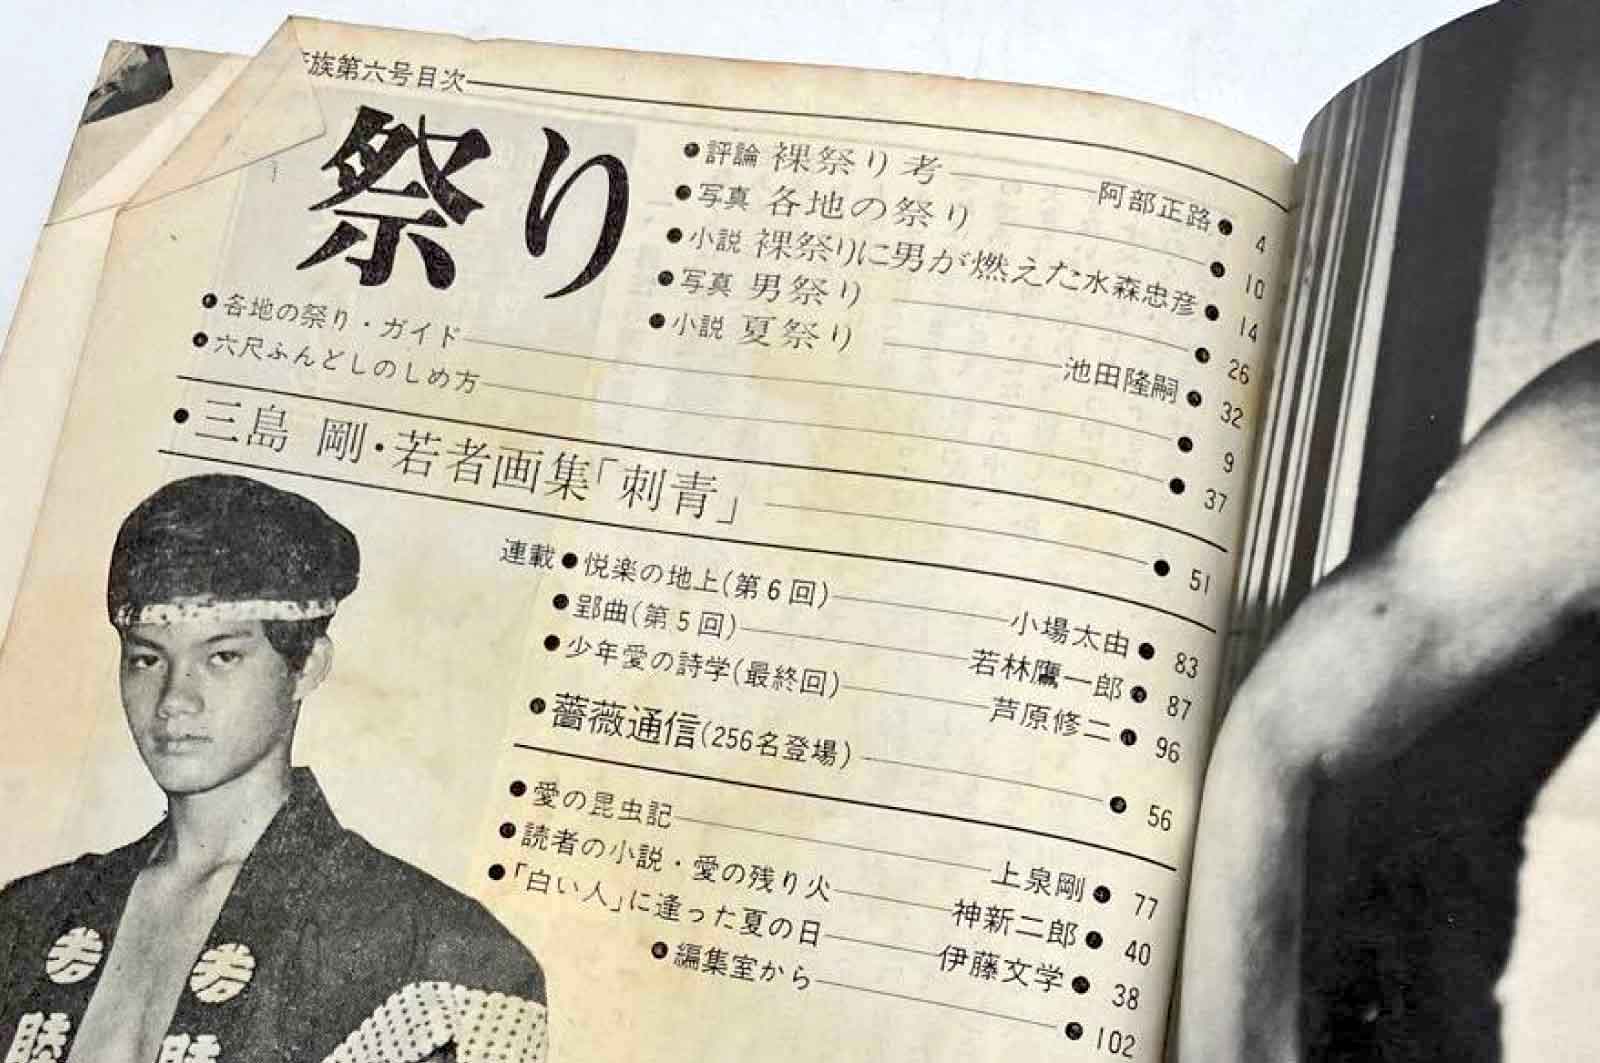 族第六号目次
祭り
●評論 裸祭り考 阿部正路● 4
●写真 各地の祭り ● 10
●小説 裸祭りに男が燃えた 水森忠彦● 14
●写真 男祭り ● 26
●小説 夏祭り 池田隆嗣● 32
●各地の祭り・ガイド ● 9
●六尺ふんどしのしめ方 ● 37
●三島 剛・若者画集「刺青」 ● 51
連載●悦楽の地上(第6回) 小場太由● 83
●郢曲(第5回) 若林鷹一郎● 87
●少年愛の詩学(最終回) 芦原修二● 96
●薔薇通信(256名登場) ● 56
●愛の昆虫記 上泉剛● 77
●読者の小説・愛の残り火 神新二郎● 40
●「白い人」に逢った夏の日 伊藤文学● 38
●編集室から ● 102